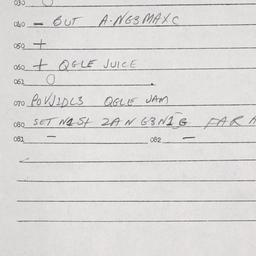 030
040 - OUT A-NG3MAXC
050 +
060 + QGLE JUICE
061 O
070 POVJIDL3 QGLE JAM
080 SET N1St 2AN G3N1G FAR
081 - 082 -